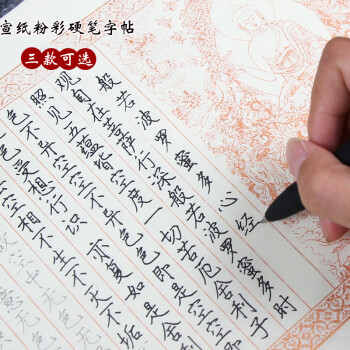 宣纸粉彩硬笔字帖
三款可选
般若波罗蜜多心经
观自在菩萨行深般若波罗蜜多时
照见五蕴皆空度一切苦厄舍利子
色不异空空不异色色即是空空即
色受想行识亦复如是舍
空相不生不灭不垢
空中无色无